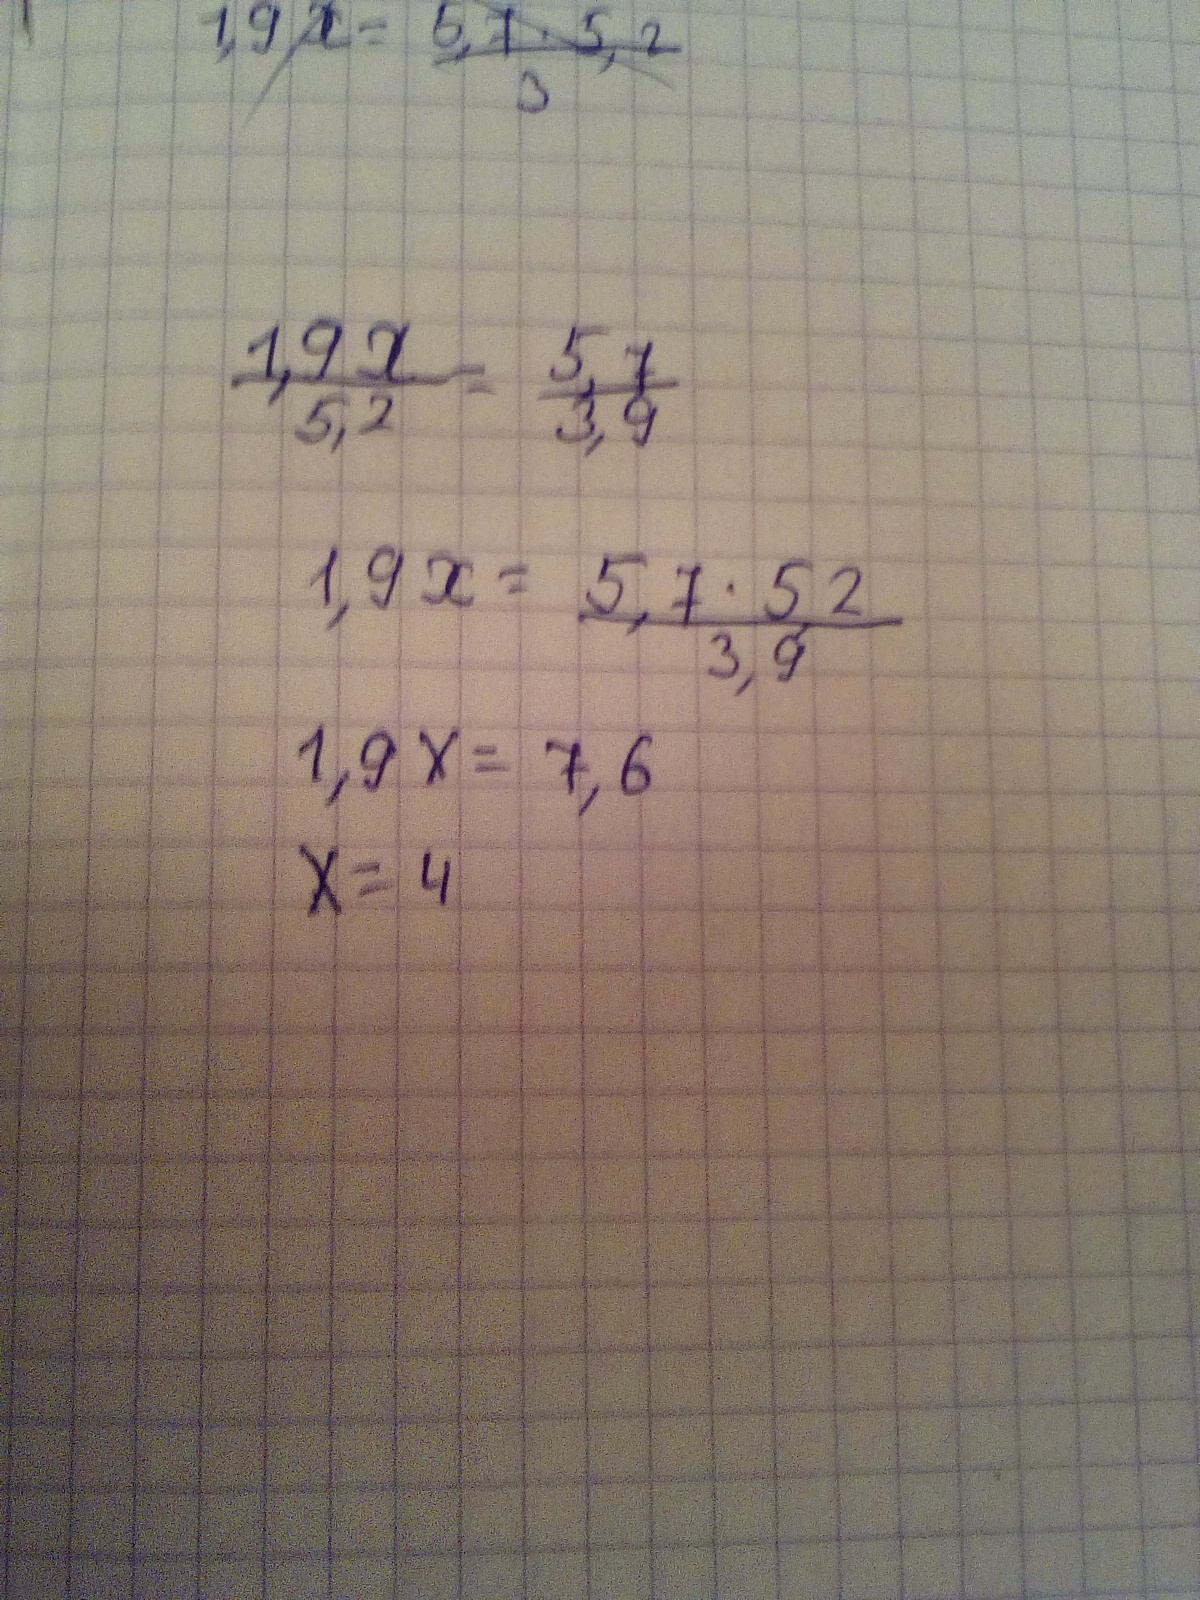 1,9x = 5,7 · 5,2
3
1,9x = 5,7
5,2 3,9
1,9x = 5,7 · 52
3,9
1,9x = 7,6
x = 4